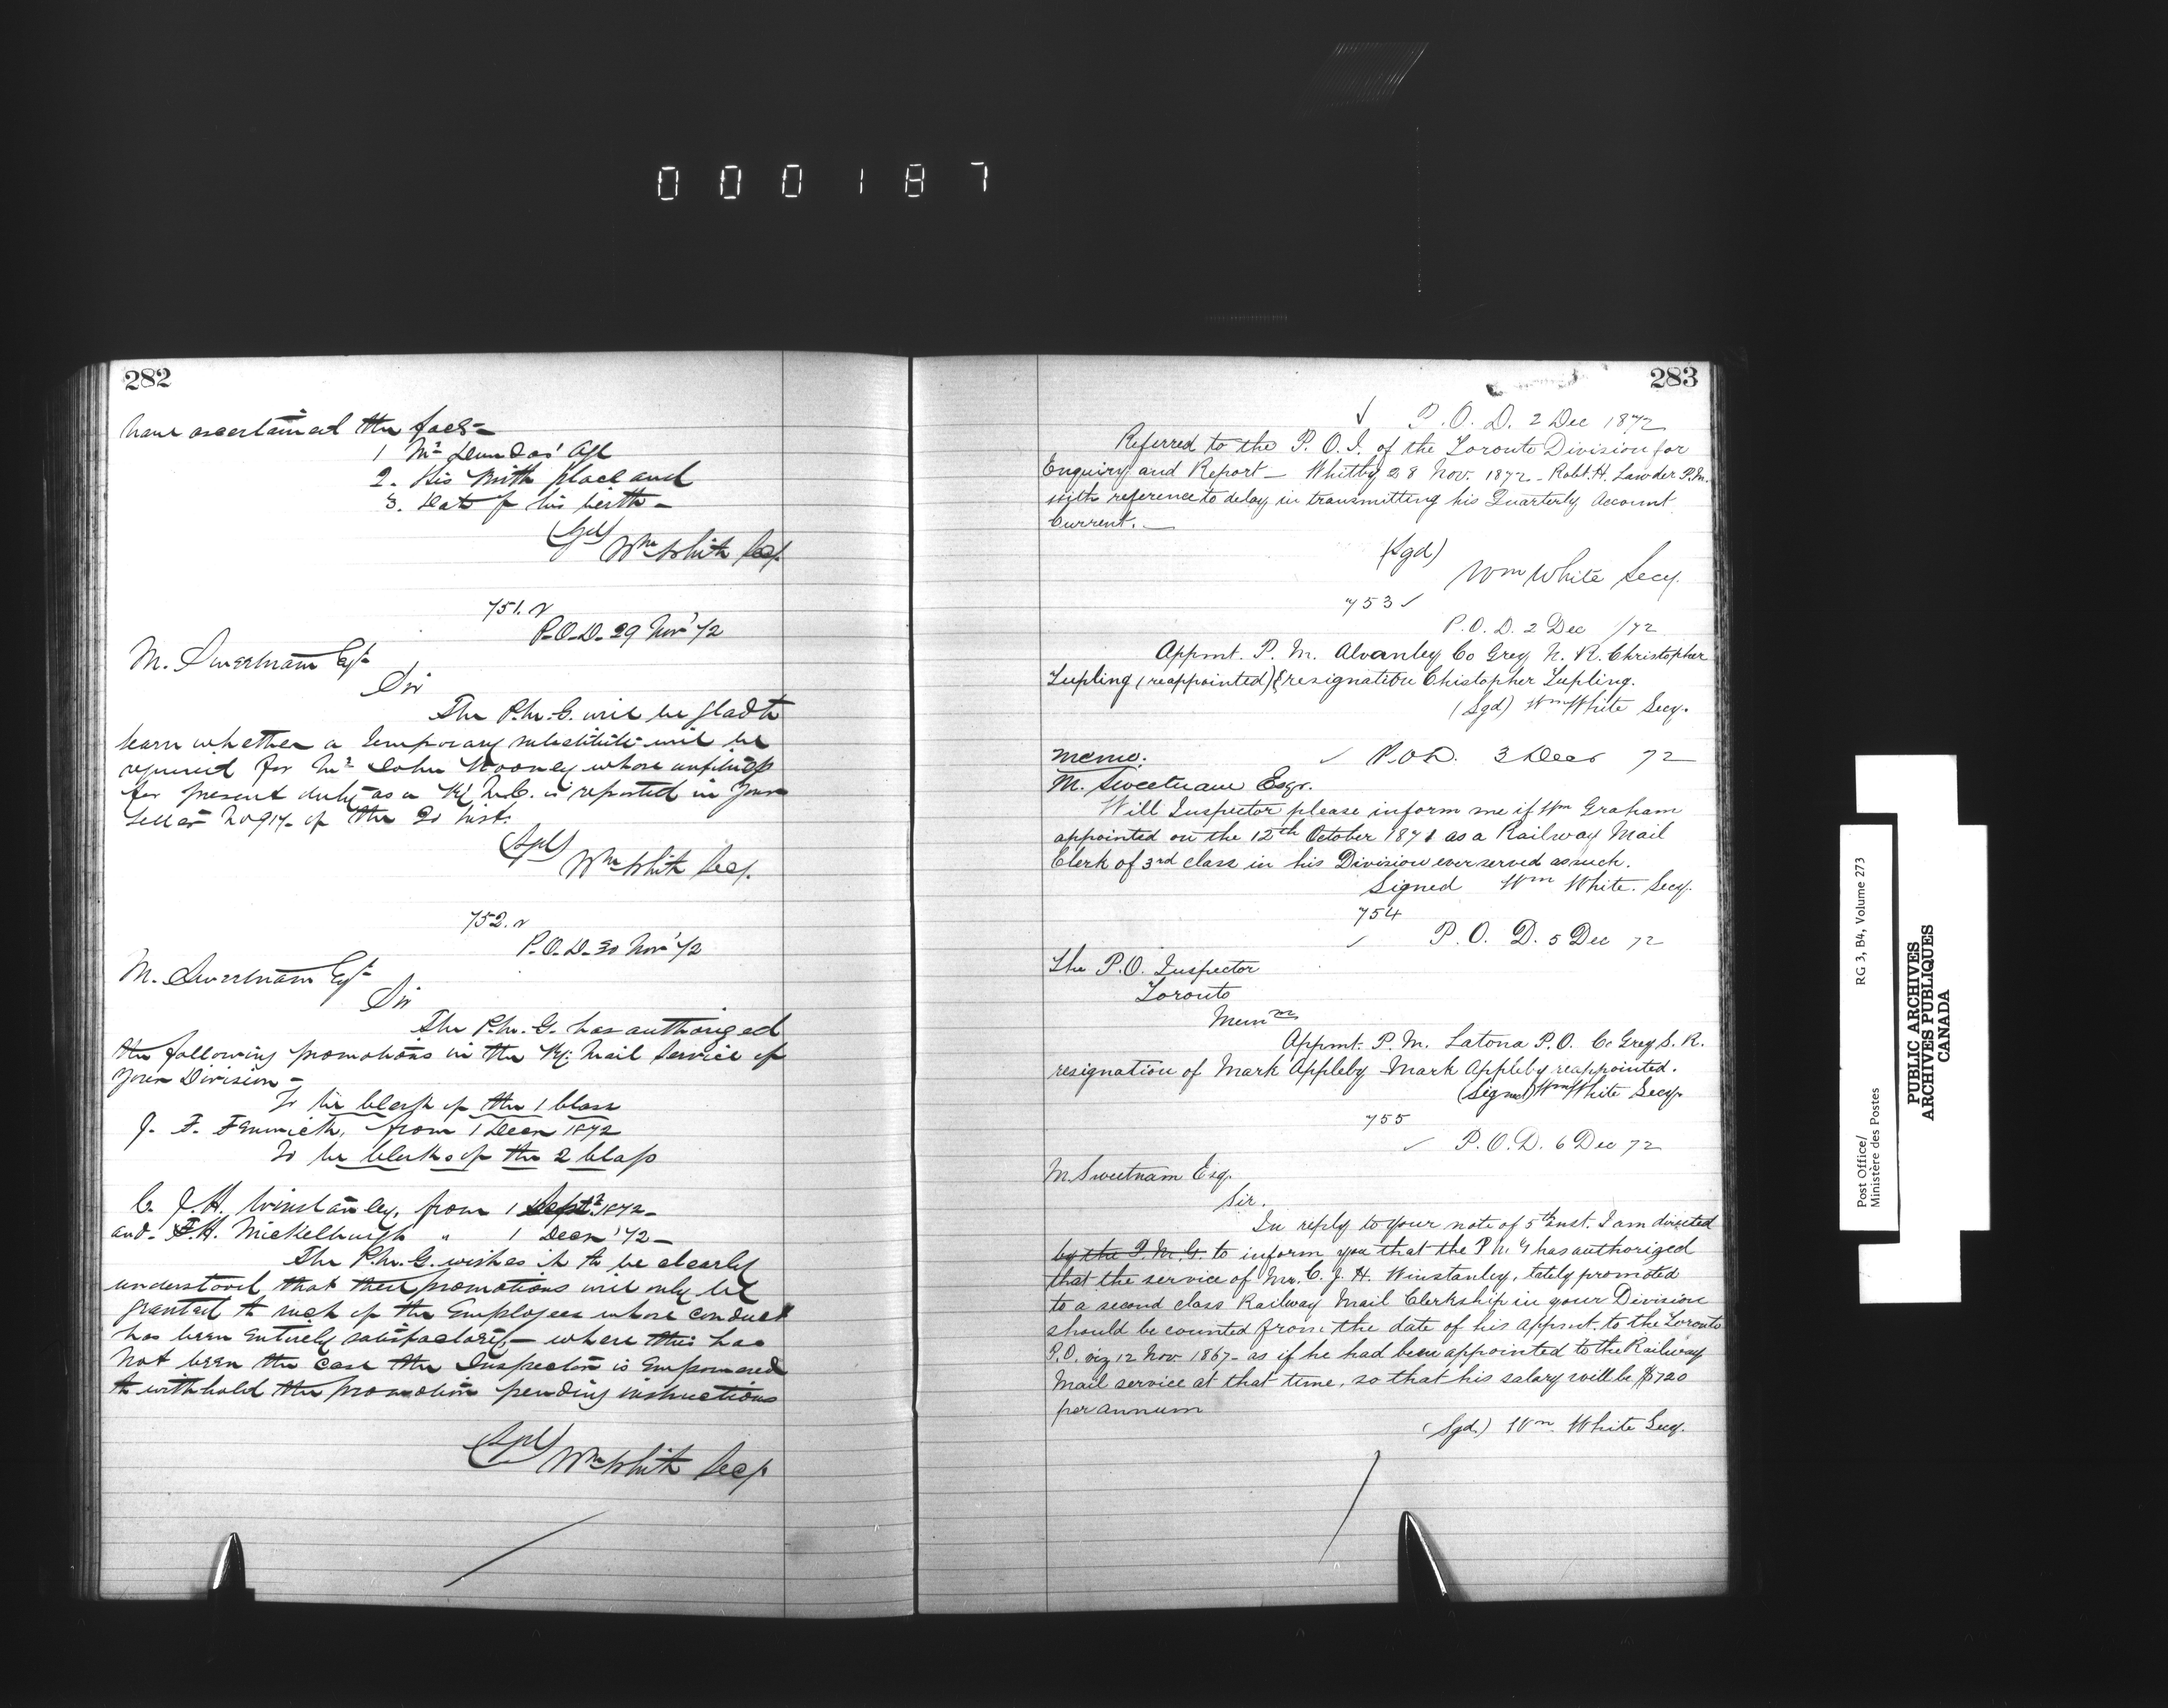 000187
282
have ascertained the facts
1 Mr Dundas' Age
2. His birth place and
3. Date of his birth
(Sgd)
Wm White Secy.
751.
P.O.D. 29 Nov '72
M. Sweetnam Esqr
Sir
The P.M.G. will be glad to
learn whether a temporary substitute will be
required for Mr John Mooney whose unfitness
for present duty as a Ry M.C. is reported in your
letter No 917 of the
(Sgd)
Wm White Secy.
752.
P.O.D. 30 Nov '72
M. Sweetnam Esqr
Sir
The P.M.G. has authorized
the following promotions in the Ry: Mail Service of
your Division
To be clerk of the 1 Class
J. F. Fenwick, from 1 Decr 1872
To be clerks of the 2 Class
C. J. H. Winstanley, from 1 Septr 1872
and F. H. Mickelburgh " 1 Decr '72
The P.M.G. wishes it to be clearly
understood that these promotions will only be
granted to such of the Employees whose conduct
has been entirely satisfactory – where this has
not been the case the Inspector is empowered
to withhold the promotion pending instructions
(Sgd)
Wm White Secy
283
P.O.D. 2 Dec 1872
Referred to the P.O.I. of the Toronto Division for
Enquiry and Report – Whitby 28 Nov. 1872 – Robt. H. Lawder P.M.
with reference to delay in transmitting his Quarterly Account
Current. –
(Sgd)
Wm White Secy.
753
P.O.D. 2 Dec /72
Appmt. P.M. Alvanley Co Grey N.R. Christopher
Lupling (reappointed) resignation Chistopher Lupling.
(Sgd) Wm White Secy.
Memo. P.O.D. 3 Decr 72
M. Sweetnam Esqr.
Will Inspector please inform me if Wm Graham
appointed on the 12th October 1871 as a Railway Mail
Clerk of 3rd class in his Division ever served as such.
Signed Wm White. Secy.
754
P.O.D. 5 Dec 72
The P.O. Inspector
Toronto
Memm
Appmt. P.M. Latona P.O. Co Grey S.R.
resignation of Mark Appleby Mark Appleby reappointed.
(Signed) Wm White Secy.
755
P.O.D. 6 Dec 72
M. Sweetnam Esq.
Sir.
In reply to your note of 5th inst. I am directed
by the P.M.G. to inform you that the P M G has authorized
that the service of Mr. C. J. H. Winstanley, lately promoted
to a second class Railway Mail Clerkship in your Division
should be counted from the date of his appmt. to the Toronto
P.O. viz 12 Nov. 1867 – as if he had been appointed to the Railway
Mail service at that time, so that his salary will be $720
per annum
(Sgd.) Wm. White Secy.
Post Office/
Ministère des Postes
RG 3, B4, Volume 273
PUBLIC ARCHIVES
ARCHIVES PUBLIQUES
CANADA